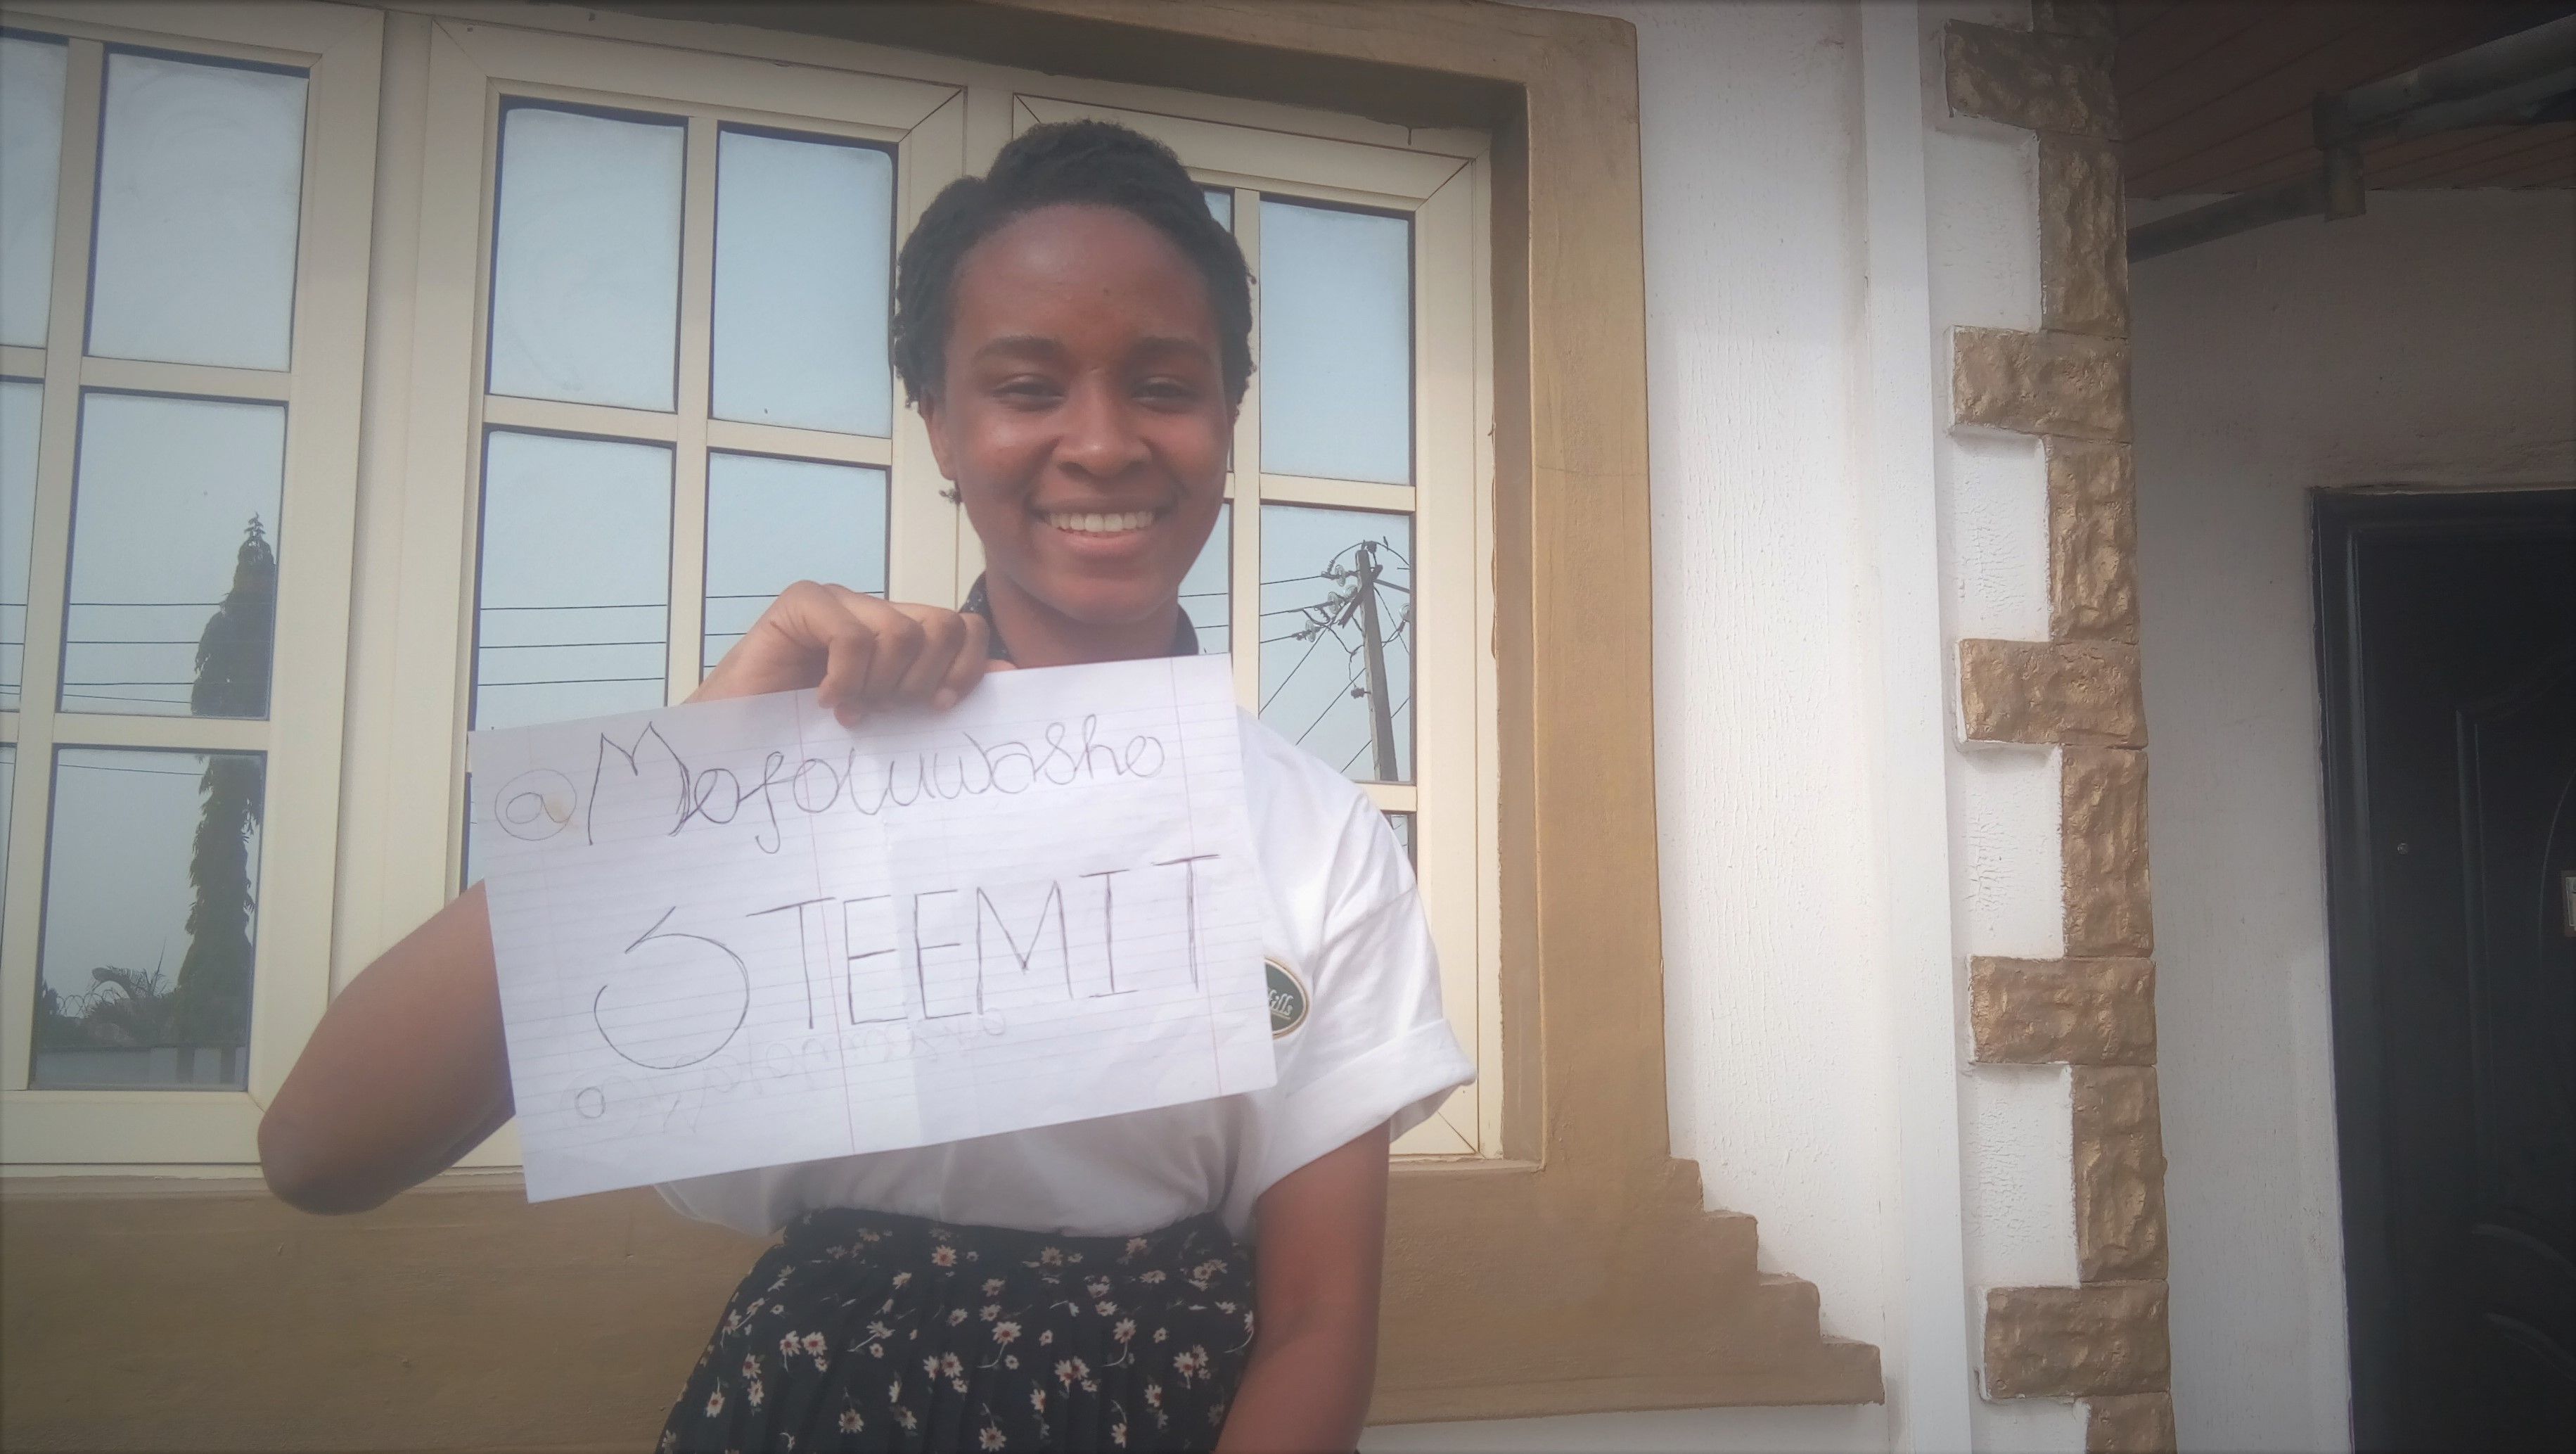 @Mofoluwasho
STEEMIT